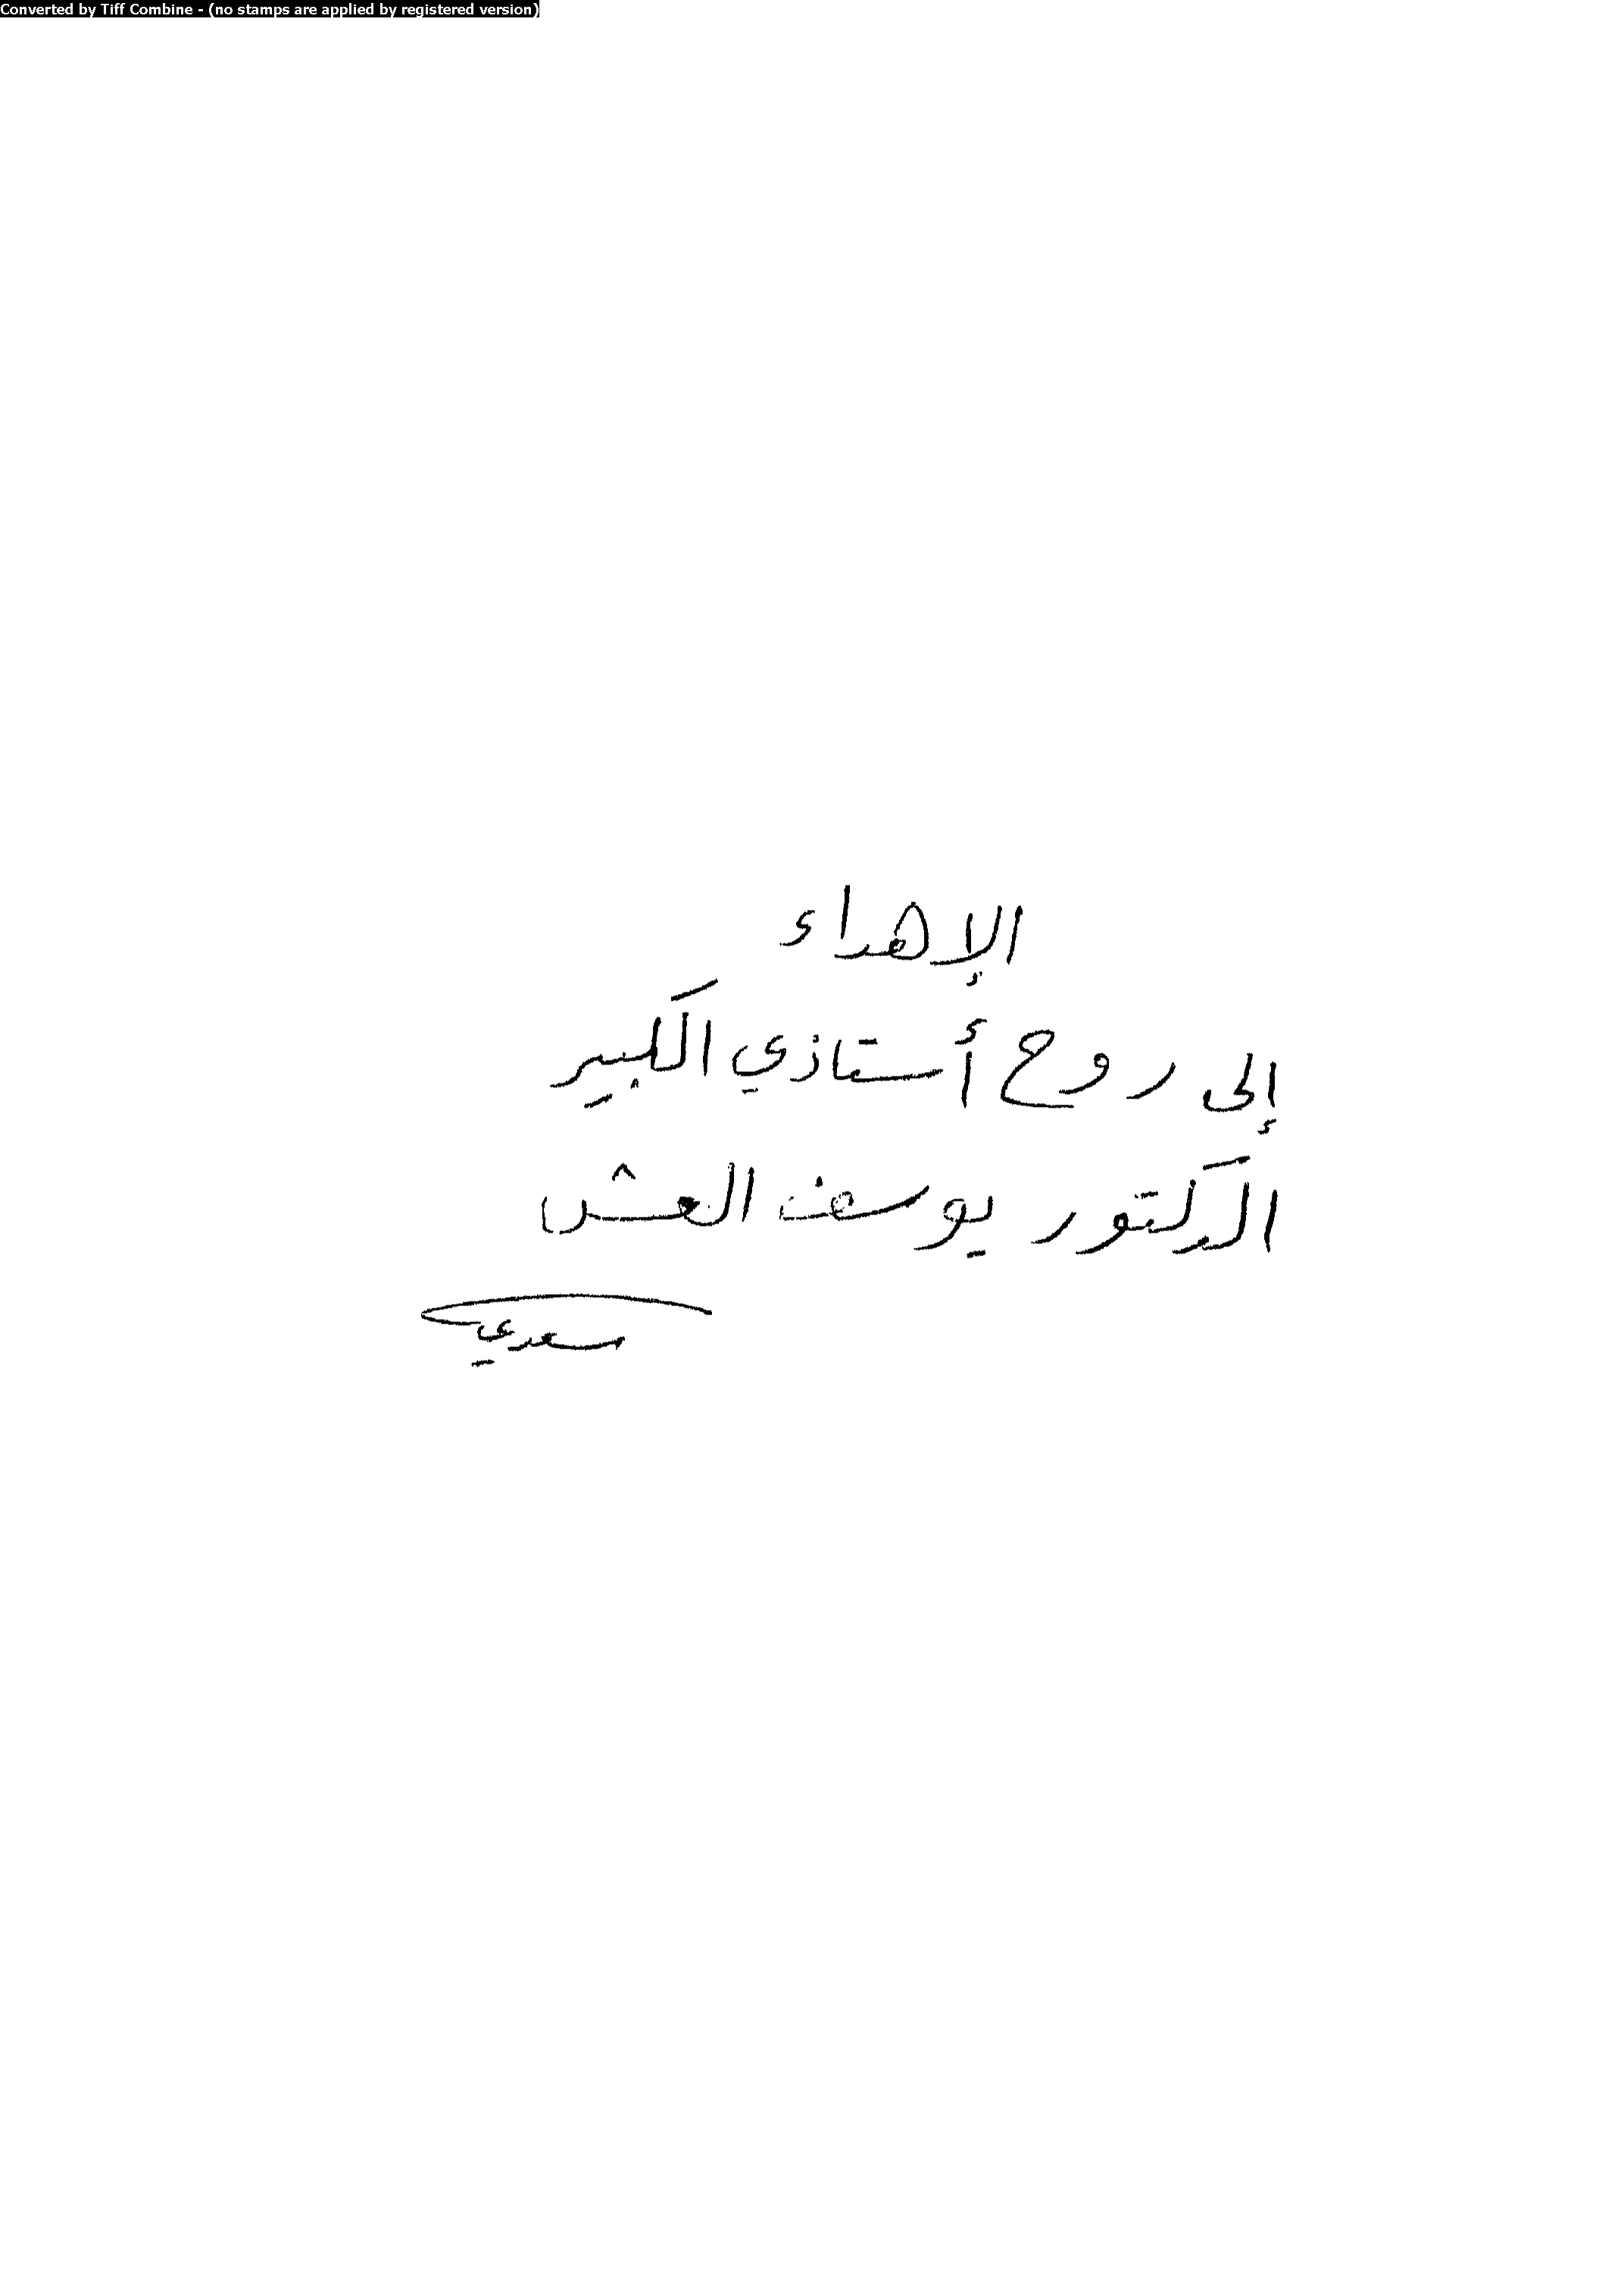 Converted by Tiff Combine - (no stamps are applied by registered version)
الإهداء
إلى روح أستاذي الكبير
الدكتور يوسف العش
سعدي